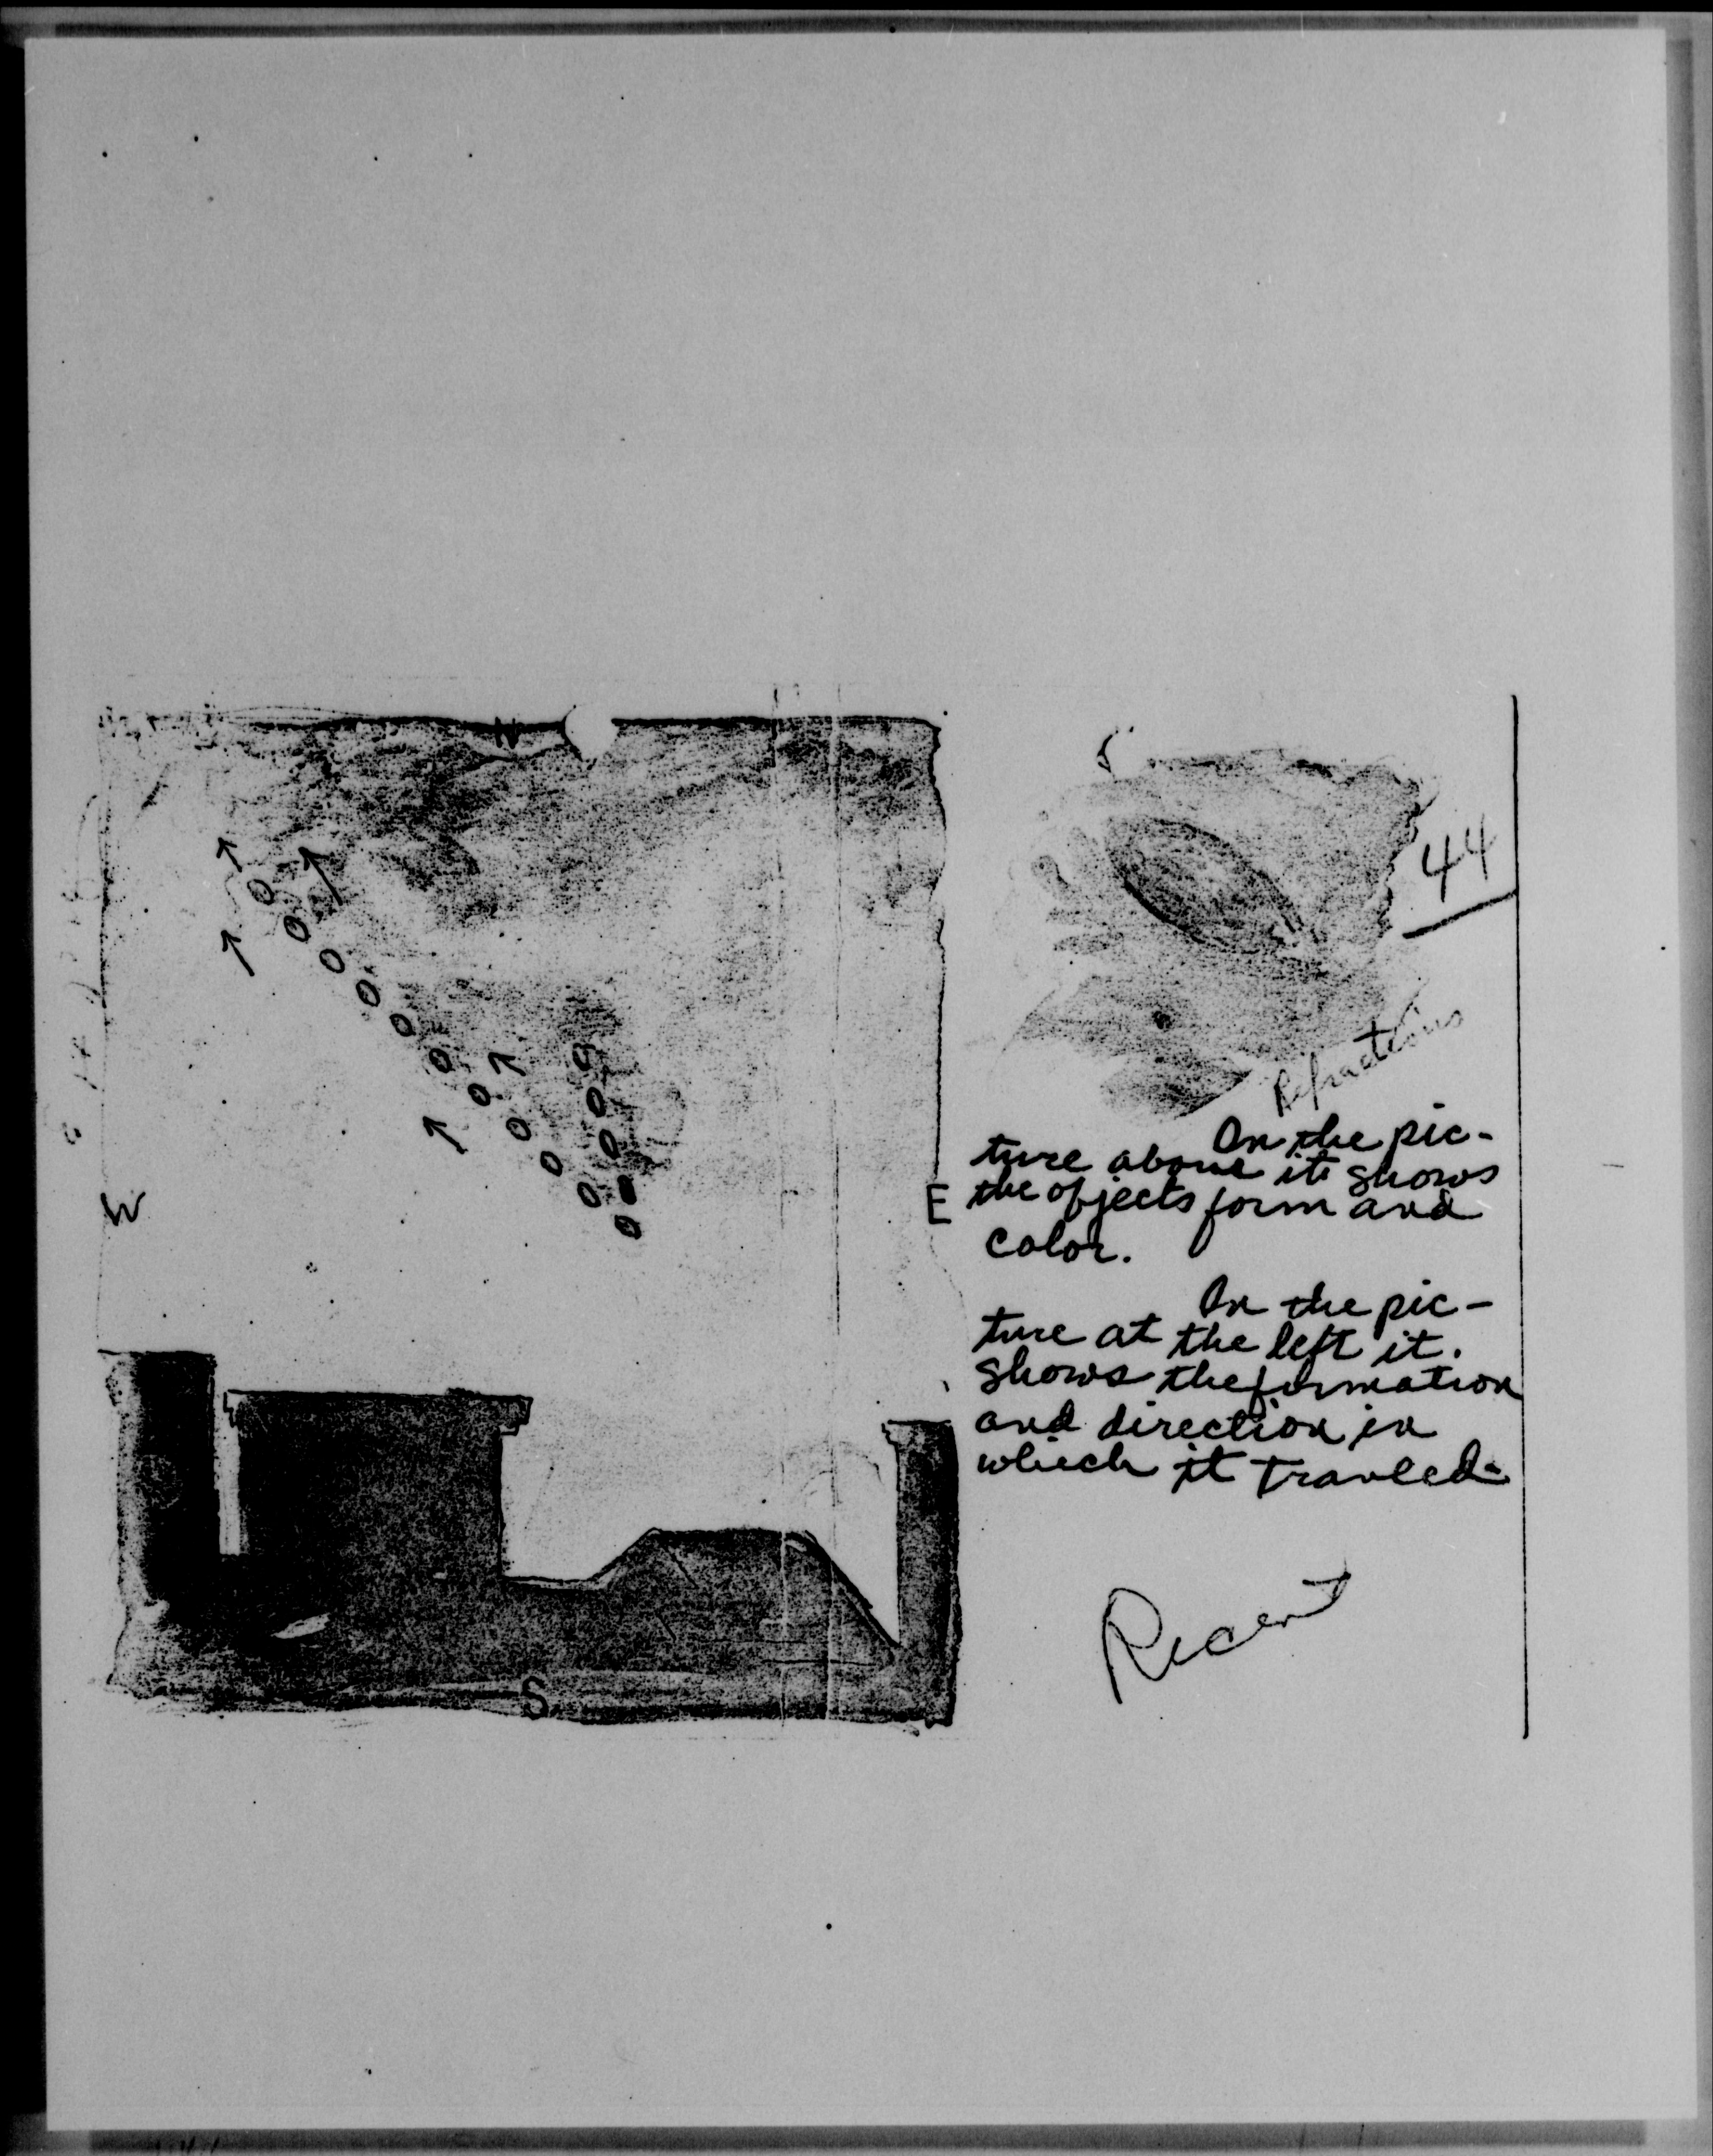 N
W
E
S
44
Refractions
In the pic-
ture above it shows
the ofjects form and
color.
In the pic-
ture at the left it.
shows the formation
and direction in
which it travled-
Recent